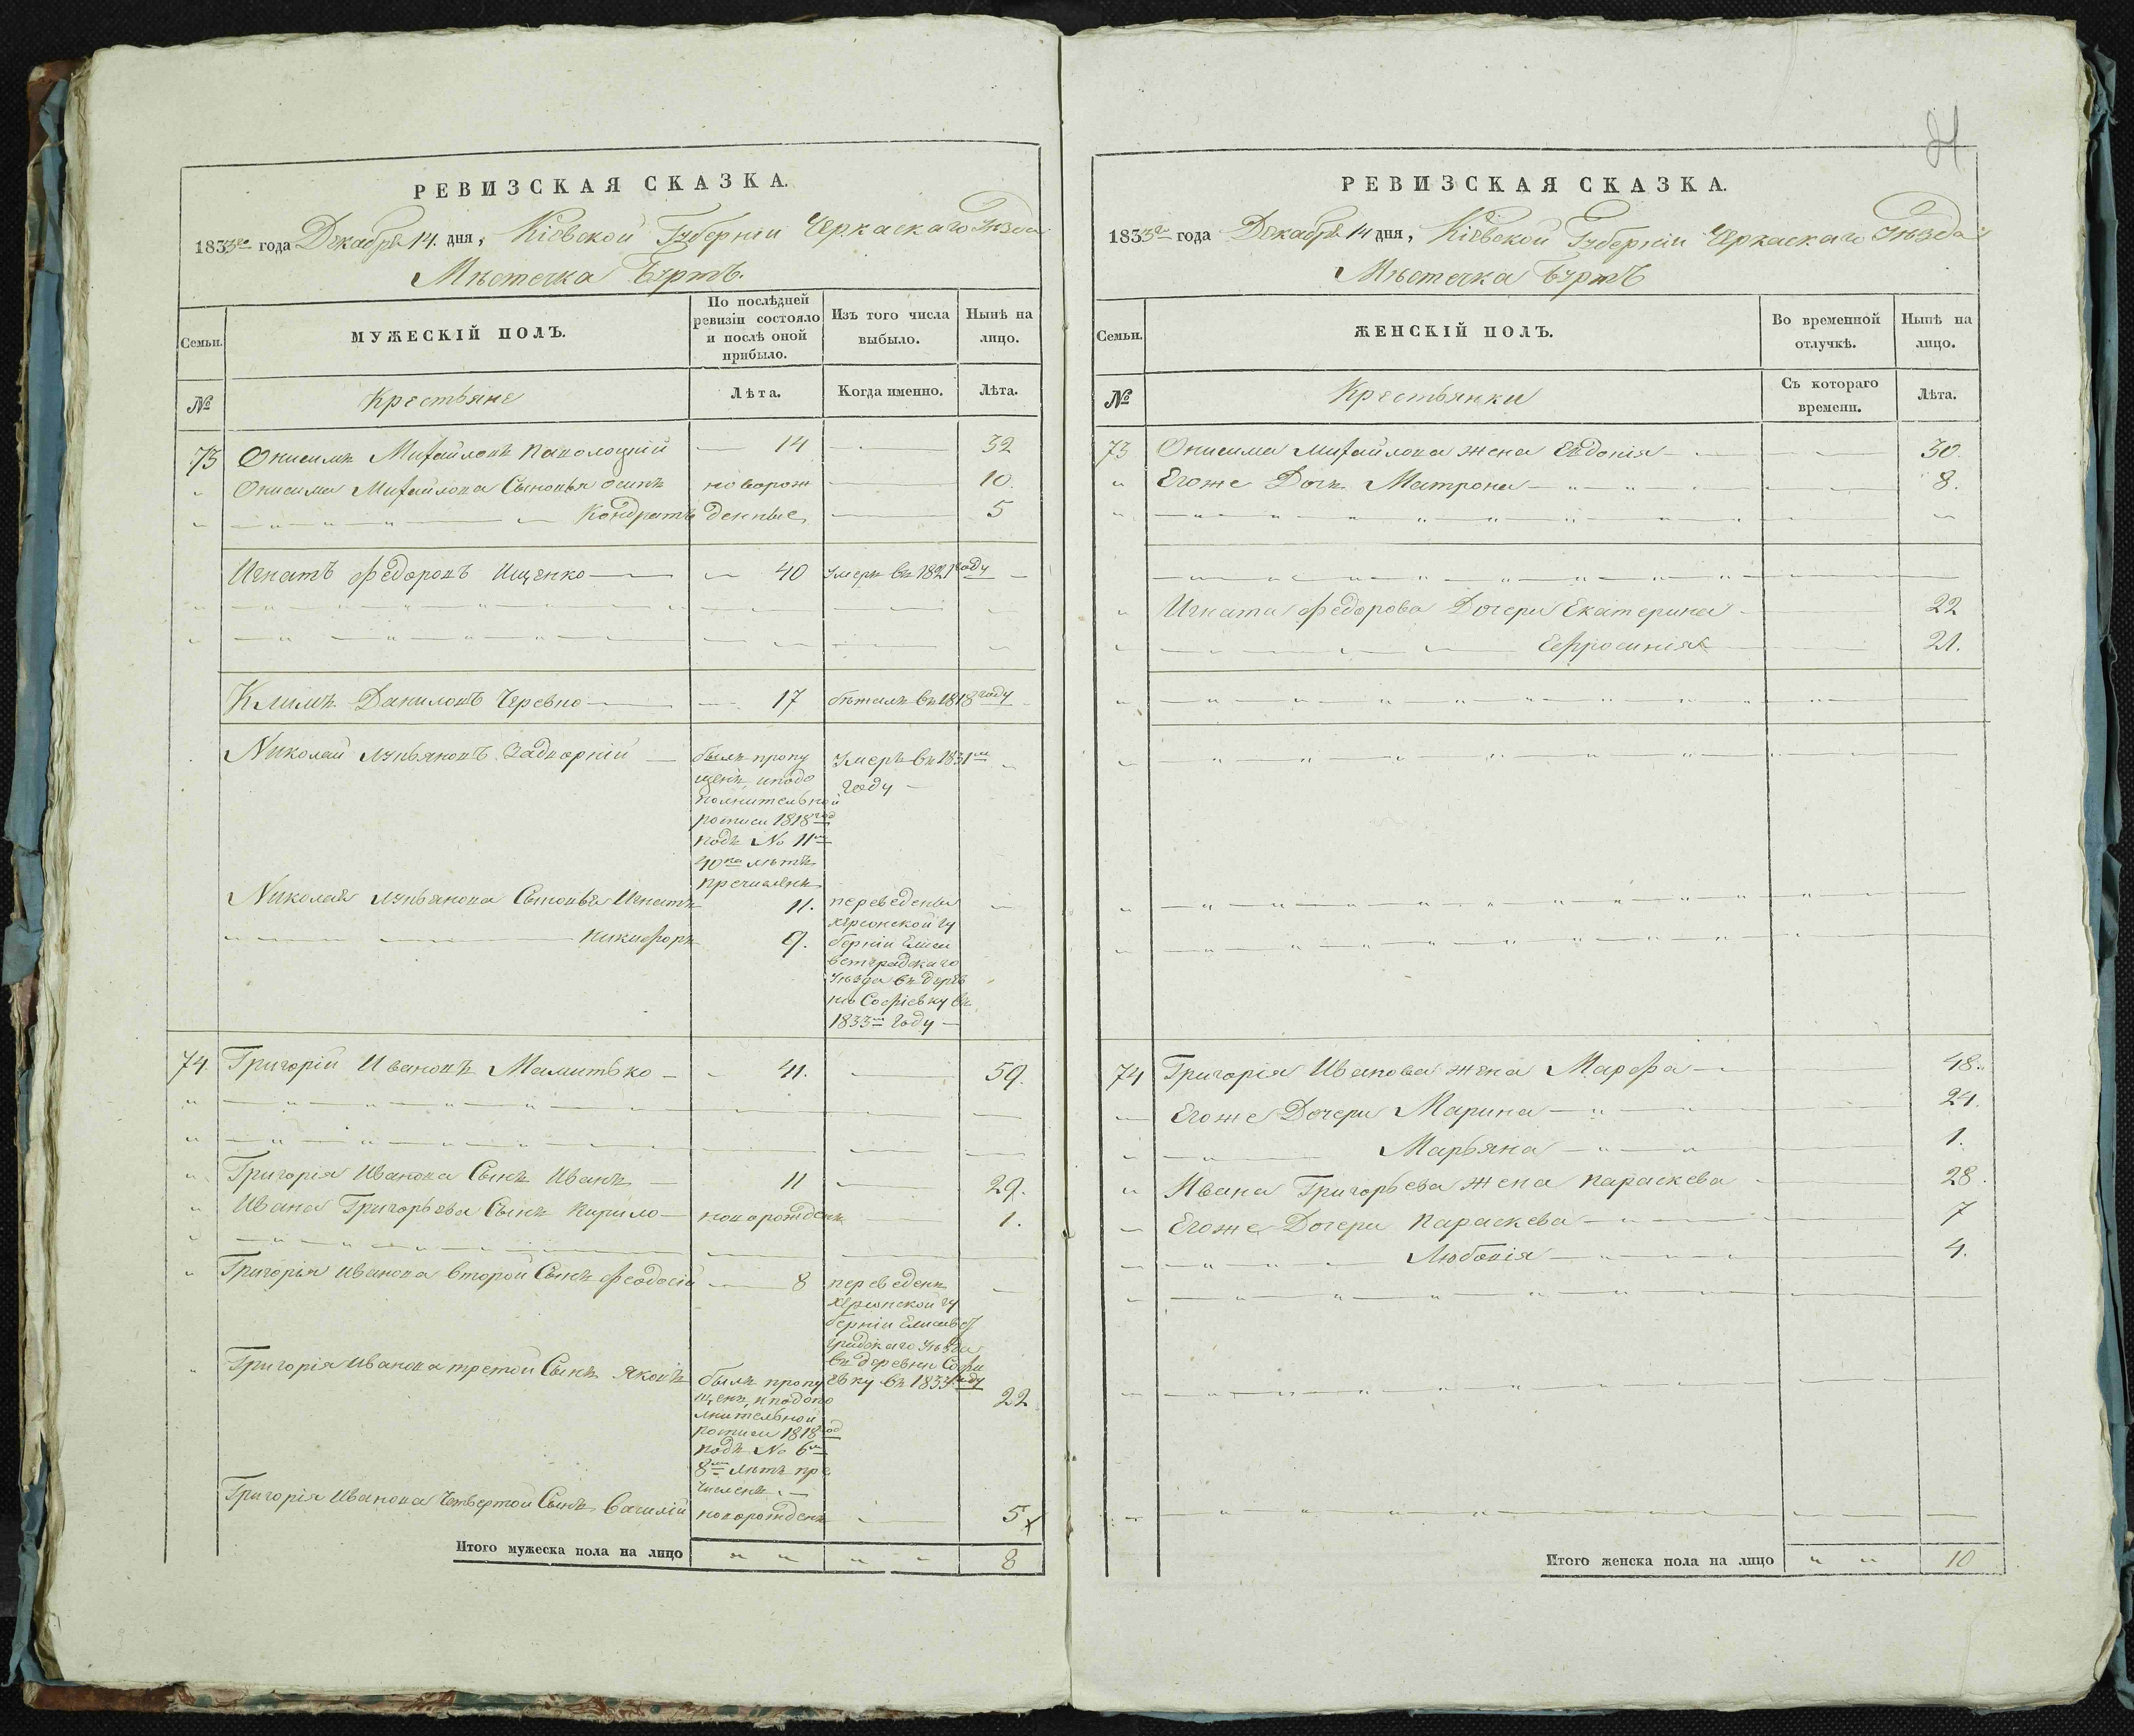 РЕВИЗСКАЯ СКАЗКА.
1833го года Декабря 14. дня, Кіевской Губерніи Черкаскаго Уезда
Мѣстечка Буртъ.
Семьи.
МУЖЕСКІЙ ПОЛЪ.
По послѣдней ревизіи состояло и послѣ оной прибыло.
Изъ того числа выбыло.
Нынѣ на лицо.
№
Крестьяне
Лѣта.
Когда именно.
Лѣта.
73 Онисимъ Михайловъ Паволоцкій — 14 — 32
" Онисима Михайлова Сыновья Осипъ новорож — 10.
" Кондратъ денные, — 5
Игнатъ Федоровъ Ищенко — 40 умеръ въ 1821 году —
Климъ Даниловъ Червно — 17 бѣжалъ въ 1818 году
Николай Лукьяновъ Задворній — былъ пропу умеръ въ 1831м
щенъ, и подо году —
полнительной
росписи 1818 год
подъ № 11м
40ка лѣтъ
причисленъ
Николая Лукьянова Сыновья Игнатъ 11. переведены
Херсонской гу
Никифоръ 9. берніи Елиса
ветградскаго
уѣзда въ дерев
ню Софіевку въ
1833м году —
74 Григорій Ивановъ Мамитько — 41. — 59.
" Григорія Иванова Сынъ Иванъ — 11 — 29.
" Ивана Григорьева Сынъ Кирило — новорожденъ — 1.
" Григорія Иванова второй Сынъ Феодосій — 8 переведенъ
Херсонской гу
берніи Елисавет
градскаго уѣзда
въ деревню Софи
" Григорія Иванова третой Сынъ Яковъ былъ пропу евку въ 1833 году
щенъ, и подопо 22
лнительной
росписи 1818 год
подъ № 6м
8м лѣтъ при
численъ. —
Григорія Иванова Четвертой Сынъ Василій новорожденъ — 5
Итого мужеска пола на лицо " " " " 8
РЕВИЗСКАЯ СКАЗКА.
1833го года Декабря 14 дня, Кіевской Губерніи Черкаскаго Уѣзда
Мѣстечка Буртъ
Семьи.
ЖЕНСКІЙ ПОЛЪ.
Во временной отлучкѣ.
Нынѣ на лицо.
№
Крестьянки
Съ котораго времени.
Лѣта.
73 Онисима Михайлова жена Евдокія — 30.
" Егоже Дочь Матрона — 8.
" Игната Федорова Дочери Екатерина — 22
" Ефросинія — 21.
74 Григорія Иванова жена Марфа — 48.
Егоже Дочери Марина — 24.
" Марьяна — 1.
" Ивана Григорьева жена Параскева — 28.
Егоже Дочери Параскева — 7
" Любовія — 4.
Итого женска пола на лицо " " 10